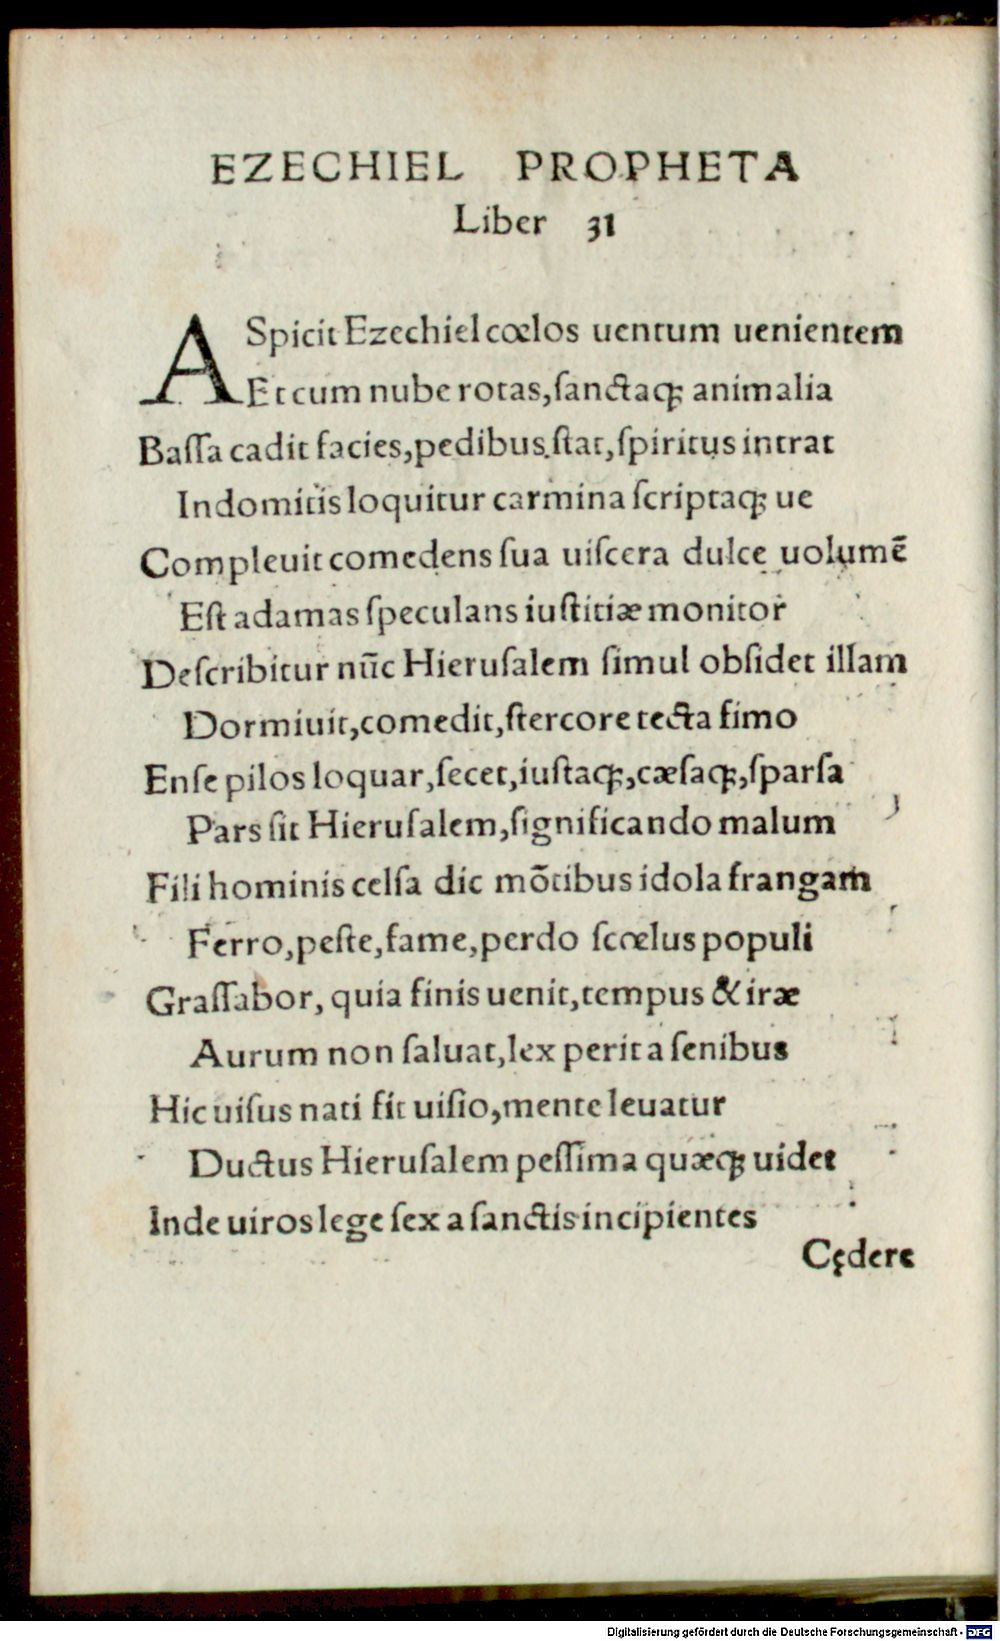 EZECHIEL PROPHETA
Liber 31
ASpicit Ezechiel cœlos uentum uenientem
Et cum nube rotas, ſanctaqꝫ animalia
Baſſa cadit facies, pedibus ſtat, ſpiritus intrat
Indomitis loquitur carmina ſcriptaqꝫ ue
Compleuit comedens ſua uiſcera dulce uolumē
Eſt adamas ſpeculans iuſtitiæ monitor
Deſcribitur nūc Hieruſalem ſimul obſidet illam
Dormiuit, comedit, ſtercore tecta fimo
Enſe pilos loquar, ſecet, iuſtaqꝫ, cæſaqꝫ, ſparſa
Pars ſit Hieruſalem, ſignificando malum
Fili hominis celſa dic mōtibus idola frangam
Ferro, peſte, fame, perdo ſcœlus populi
Graſſabor, quia finis uenit, tempus & iræ
Aurum non ſaluat, lex perit a ſenibus
Hic uiſus nati fit uiſio, mente leuatur
Ductus Hieruſalem peſſima quæqꝫ uidet
Inde uiros lege ſex a ſanctis incipientes
Cędere
Digitalisierung gefördert durch die Deutsche Forschungsgemeinschaft - DFG